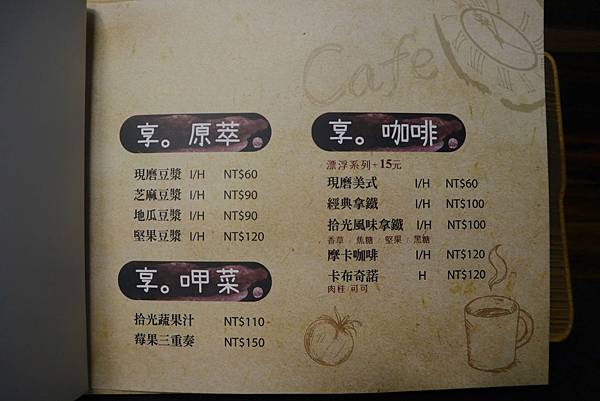 Cafe
享。原萃
現磨豆漿 I/H NT$60
芝麻豆漿 I/H NT$90
地瓜豆漿 I/H NT$90
堅果豆漿 I/H NT$120
享。呷菜
拾光蔬果汁 NT$110
莓果三重奏 NT$150
享。咖啡
漂浮系列+15元
現磨美式 I/H NT$60
經典拿鐵 I/H NT$100
拾光風味拿鐵 I/H NT$100
香草/焦糖/堅果/黑糖
摩卡咖啡 I/H NT$120
卡布奇諾 H NT$120
肉桂/可可